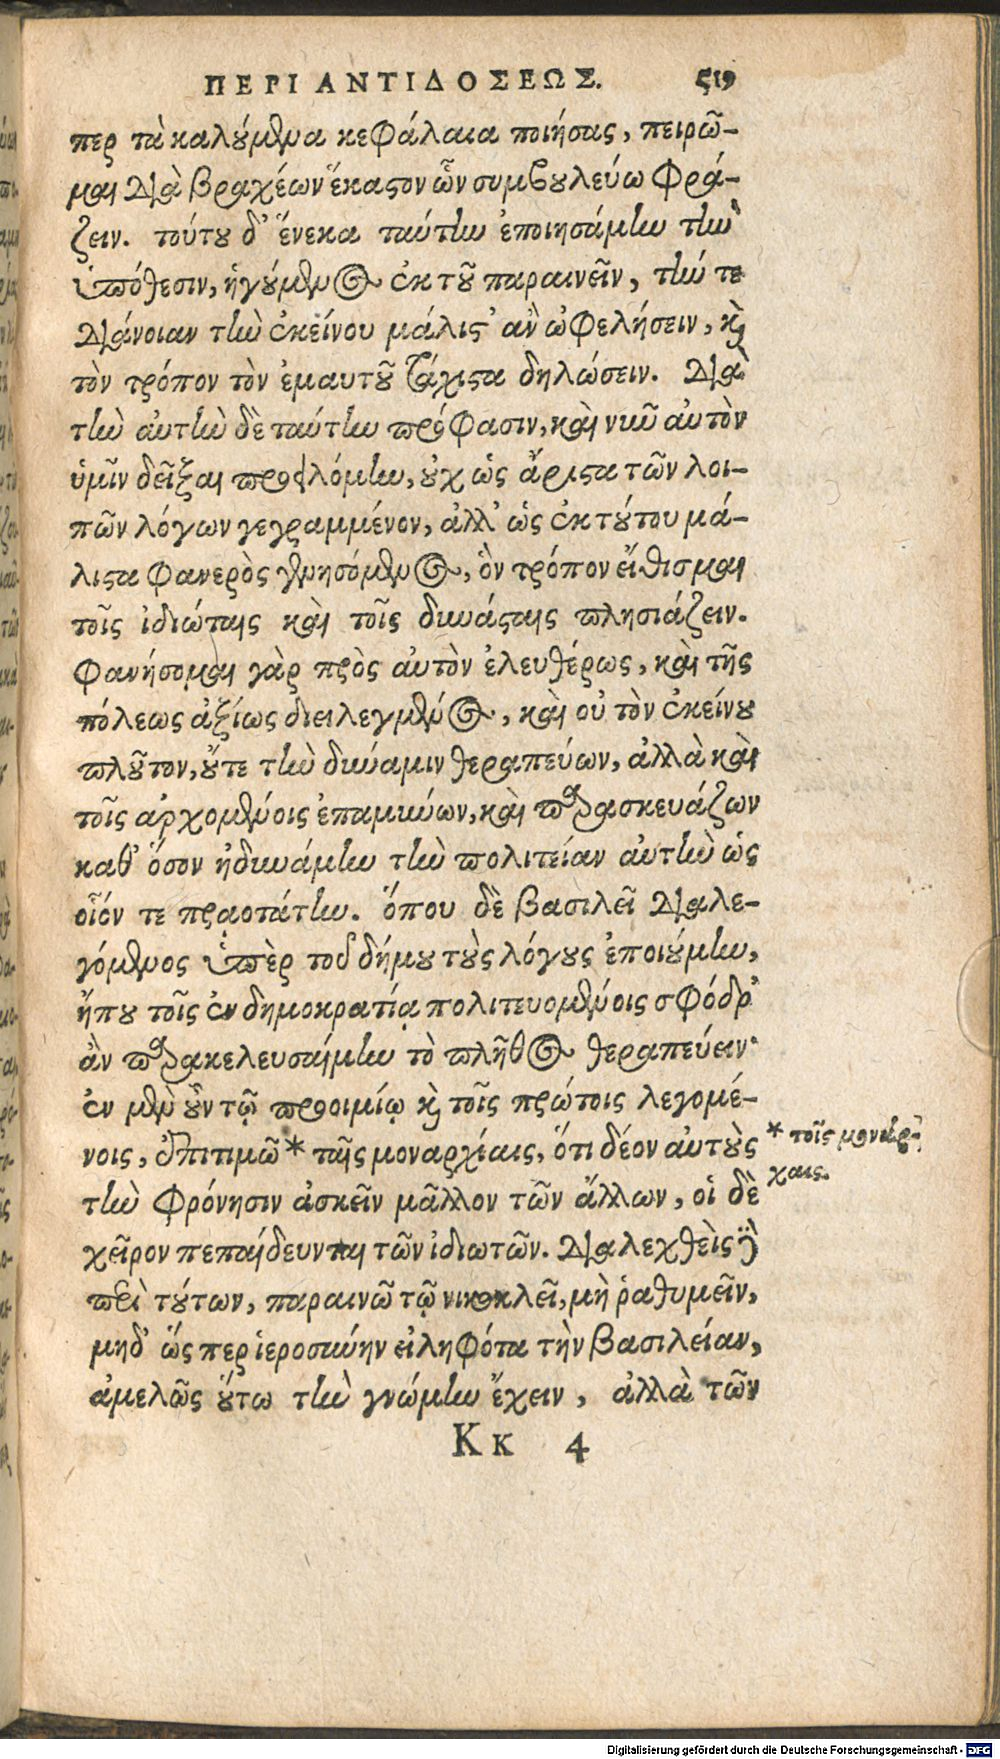 ΠΕΡΙ ΑΝΤΙΔΟΣΕΩΣ. 519
περ τὰ καλούμενα κεφάλαια ποιήσας, πειρῶ-
μαι διὰ βραχέων ἕκαστον ὧν συμβουλεύω φρά-
ζειν. τούτου δ' ἕνεκα ταύτην ἐποιησάμην τὴν
ὑπόθεσιν, ἡγούμενος ἐκ τοῦ παραινεῖν, τήν τε
διάνοιαν τὴν ἐκείνου μάλιστ' ἂν ὠφελήσειν, καὶ
τὸν τρόπον τὸν ἐμαυτοῦ τάχιστα δηλώσειν. διὰ
τὴν αὐτὴν δὲ ταύτην πρόφασιν, καὶ νῦν αὐτὸν
ὑμῖν δεῖξαι προειλόμην, οὐχ ὡς ἄριστα τῶν λοι-
πῶν λόγων γεγραμμένον, ἀλλ' ὡς ἐκ τούτου μά-
λιστα φανερὸς γενησόμενος, ὃν τρόπον εἴθισμαι
τοῖς ἰδιώταις καὶ τοῖς δυνάσταις πλησιάζειν.
φανήσομαι γὰρ πρὸς αὐτὸν ἐλευθέρως, καὶ τῆς
πόλεως ἀξίως διειλεγμένος, καὶ οὐ τὸν ἐκείνου
πλοῦτον, οὔτε τὴν δύναμιν θεραπεύων, ἀλλὰ καὶ
τοῖς ἀρχομένοις ἐπαμύνων, καὶ παρασκευάζων
καθ' ὅσον ἠδυνάμην τὴν πολιτείαν αὐτὴν ὡς
οἷόν τε πρᾳοτάτην. ὅπου δὲ βασιλεῖ διαλε-
γόμενος ὑπὲρ τοῦ δήμου τοὺς λόγους ἐποιούμην,
ἤπου τοῖς ἐν δημοκρατίᾳ πολιτευομένοις σφόδρ'
ἂν παρακελευσαίμην τὸ πλῆθος θεραπεύειν·
ἐν μὲν οὖν τῷ προοιμίῳ καὶ τοῖς πρώτοις λεγομέ-
νοις, ἐπιτιμῶ * ταῖς μοναρχίαις, ὅτι δέον αὐτοὺς
* τοῖς μονάρ-
χαις.
τὴν φρόνησιν ἀσκεῖν μᾶλλον τῶν ἄλλων, οἱ δὲ
χεῖρον πεπαίδευνται τῶν ἰδιωτῶν. διαλεχθεὶς δὲ
περὶ τούτων, παραινῶ τῷ νικοκλεῖ, μὴ ῥαθυμεῖν,
μηδ' ὥς περ ἱεροσύνην εἰληφότα τὴν βασιλείαν,
ἀμελῶς οὕτω τὴν γνώμην ἔχειν, ἀλλὰ τῶν
Κκ 4
Digitalisierung gefördert durch die Deutsche Forschungsgemeinschaft - DFG